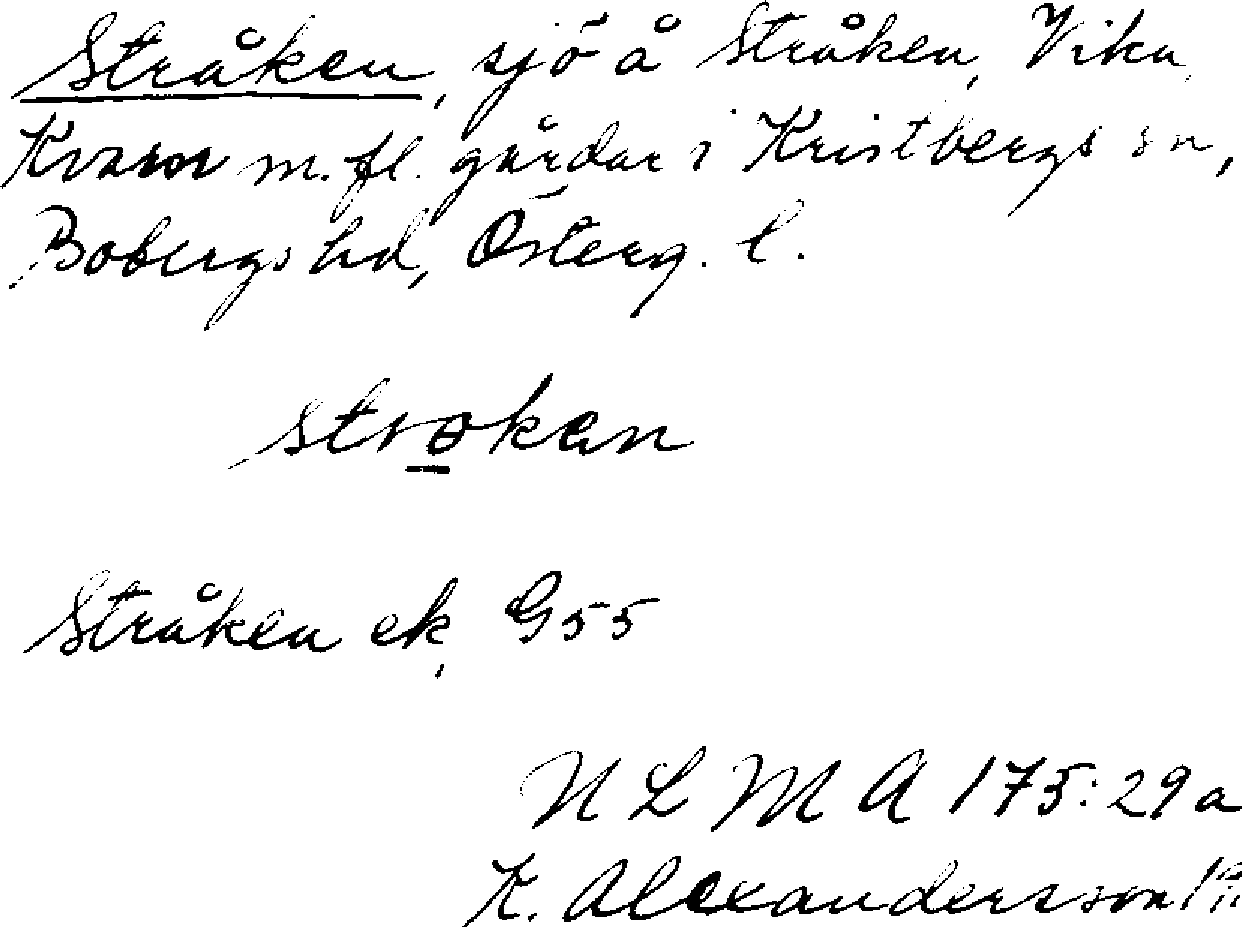 Stråken, sjö å Stråken, Vika,
Kvarn m. fl. gårdar i Kristbergs sn,
Bobergs hd, Österg. l.
stroken
Stråken ek. G55
N L M A 175:29a
K. Alexandersson